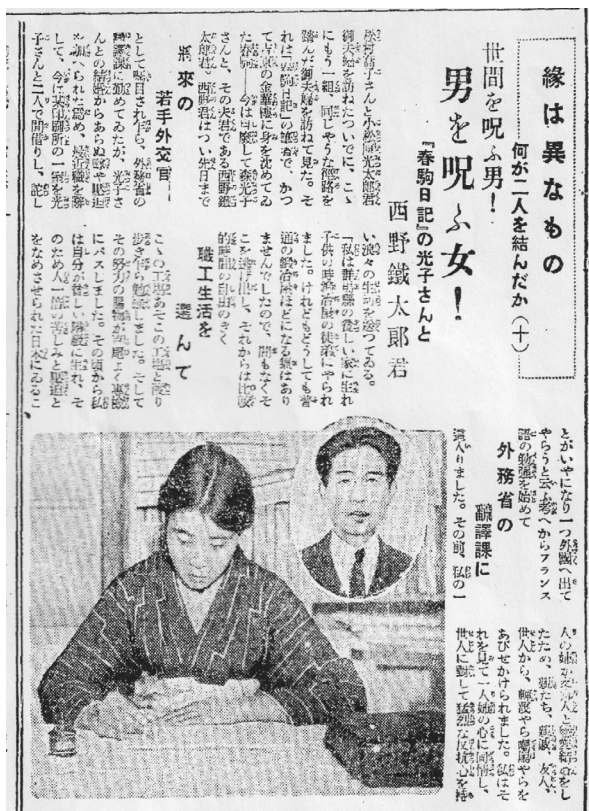 縁は異なもの
何が二人を結んだか(十)
世間を呪ふ男!
男を呪ふ女!
『春駒日記』の光子さんと
西野鐵太郎君
松村喬子さんと
御夫婦を訪ねたついでに、こゝ
にもう一組、同じやうな徑路を
踏んだ御夫婦を訪ねて見た。そ
れは『春駒日記』の著者で、かつ
て吉原の金華樓に身を沈めてゐ
た春駒――今は自廢して森光子
さんと、その夫君である西野鐵
太郎君。西野君はつい先日まで
將來の
若手外交官
として囑目され乍ら、外務省の
飜譯課に勤めてゐたが、光子さ
んとの結婚からあらぬ壓迫
を加へられた爲め、最近職を辭
して、今は某印刷所の一室を光
子さんと二人で間借りし、詫し
い浪々の生活を送つてゐる。
「私は群馬縣の貧しい家に生れ
子供の時鍛冶屋の徒弟にやられ
ました。けれどもどうしても普
通の鍛冶屋ほどになる氣はあり
ませんでしたので、間もなくそ
こを逃げ出し、それからは比較
的時間の自由のきく
職工生活を
選んで
こゝの工場あそこの工場と渡り
歩き乍ら勉強しました。そして
その努力の賜物が首尾よく專檢
にパスしました。その頃から私
は自分が貧しい階級に生れ、そ
のため人一倍の苦しみと壓迫と
をなめさせられた日本にゐるこ
とがいやになり一つ外國へ出て
やらうと云ふ考へからフランス
語の勉強を始めて
外務省の
飜譯課に
這入りました。その前、私の一
人の姉が支那人と戀愛結婚をし
たため、親たち、親戚、友人、
世人から、輕蔑やら嘲罵やらを
あびせかけられました。私はそ
れを見て一人姉の心に同情し、
世人に對して猛烈な反抗心を持